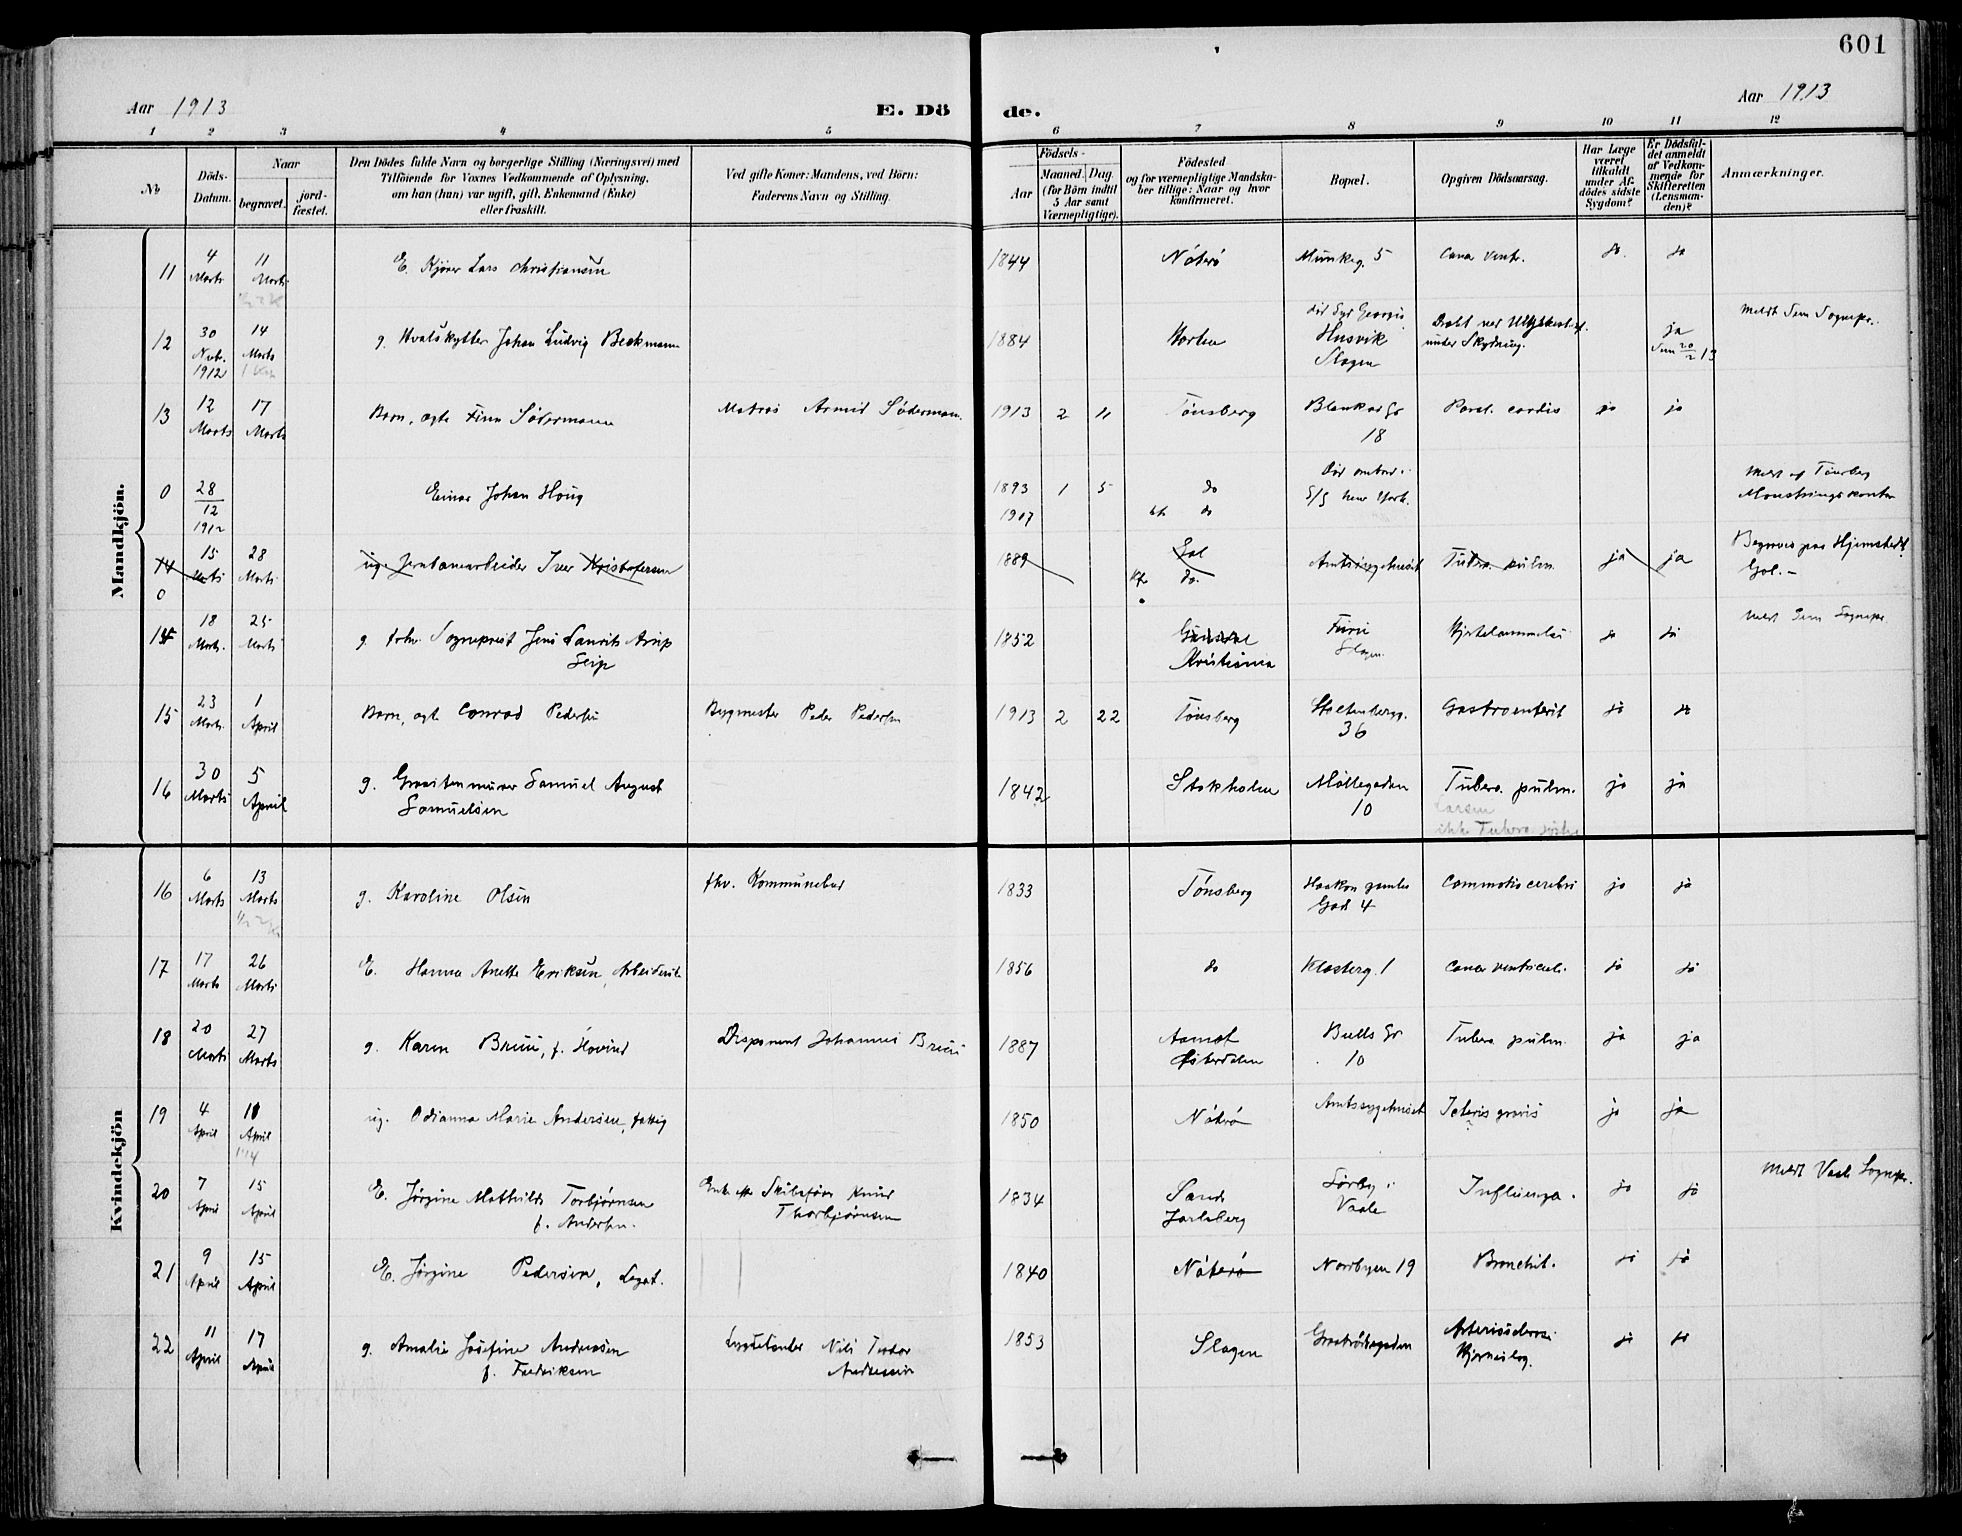 601
Aar 1913
E. Dö
de.
Aar 1913
1 2 3 4 5 6 7 8 9 10 11 12
No
Döds-
Datum.
Naar
begravet.
jord-
fæstet.
Den Dödes fulde Navn og borgerlige Stilling (Næringsvei) med
Tilföiende for Voxnes Vedkommende af Oplysning,
om han (hun) var ugift, gift, Enkemand (Enke)
eller fraskilt.
Ved gifte Koner: Mandens, ved Börn:
Faderens Navn og Stilling.
Födsels-
Aar
Maaned. Dag.
(for Börn indtil
5 Aar samt
Værnepligtige).
Födested
og for værnepligtige Mandska-
ber tillige: Naar og hvor
konfirmeret.
Bopæl.
Opgiven Dödsaarsag.
Har Læge
været
tilkaldt
under Af-
dödes sidste
Sygdom?
Er Dödsfal-
det anmeldt
af Vedkom-
mende for
Skifteretten
(Lensman-
den)?
Anmærkninger.
Mandkjön.
11 4 Marts 11 Marts E. Kjører Lars Christiansen 1844 Nøterø Munkeg. 5 Cancer Ventr. ja ja
12 30 Nvbr. 1912 14 Marts g. Hvalskytter Johan Ludvig Beckmann 1884 Horten død Syd Georgia Husvik Slagen under Skydning. ja Sem 20/2 13 meldt Sem Sognepr.
13 12 Marts 17 Marts Barn, ægte Finn Södermann Matros Arvid Södermann 1913 2 11 Tönsberg 18 Paral. cordis ja ja
0 28/12 1912 Einar Johan Houg 1893 1 5 do 1907 do Död ombord i S/S New York. meldt af Tönsberg Mønstringskontor
14 0 15 Marts 28 Marts ug. Jernbanearbeider Iver Kristofersen 1889 Gol Kf. do. Amtssygehuset Tuberc. pulm. ja ja Begraves paa Hjemstedet Gol. –
14 18 Marts 25 Marts g. fhv. Sogneprest Jens Laurits Arup Seip 1852 Kristiania Slagen Hjertelammelse ja ja meldt Sem Sognepr.
15 23 Marts 1 April Barn, ægte Conrad Pedersen Bygmester Peder Pedersen 1913 2 22 Tönsberg Stoltenbergg. 36 Gastroenterit ja ja
16 30 Marts 5 April g. Graastenmurer Samuel August Samuelsen 1842 Stokholm Møllegaden 10 Tuberc. pulm. ja ja
Larsen
ikke Tuberc.
Kvindekjön
16 6 Marts 13 Marts g. Karoline Olsen fhv. Kommunebud 1833 Tönsberg Haakon gamles Gad 4 Commotio cerebri ja ja
17 17 Marts 26 Marts E. Hanna Anette Eriksen, Arbeiderske 1856 do Klosterg. 1 Cancer ventriculi. ja ja
18 20 Marts 27 Marts g. Karen Bruu, f. Hovind Disponent Johannes Bruu 1887 Aamot Østerdalen Bulls Gd 10 Tuberc. pulm. ja ja
19 4 April 11 April ug. Odianna Marie Andersen, fattig 1850 Nøterø Amtssygehuset Icteris gravis ja ja
20 7 April 15 April E. Jörgine Mathilde Torbjörnsen f. Andersen. Enke efter Skibsfører Knud Thorbjørnsen 1834 Sande Jarlsberg Sørby i Vaale Influenza. ja ja meldt Vaale Sognepr.
21 9 April 15 April E. Jörgine Pedersen, Legat. 1840 Nøterø Norbyen 19 Bronchit. ja ja
22 11 April 17 April g. Amalie Josefine Andresen f. Fredriksen Lygtetænder Nils Teodor Andresen 1853 Slagen Graabrødregaden Arterioslerose Hjerneslag. ja ja